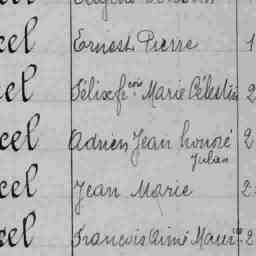 cel Ernest Pierre 1
cel Félix fçois Marie Célestin 2
cel Adrien Jean honoré 2
Julien
cel Jean Marie 2
cel Francois Aimé Maurice 2